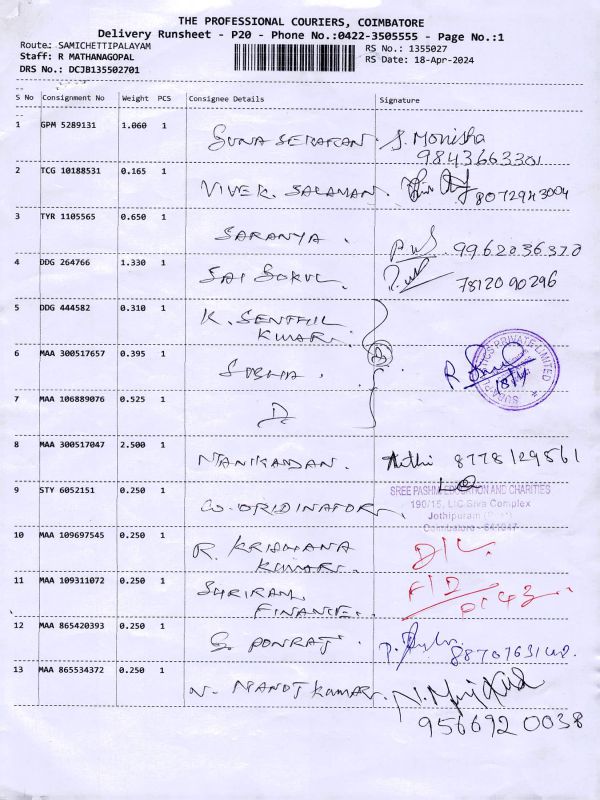 THE PROFESSIONAL COURIERS, COIMBATORE
Delivery Runsheet - P20 - Phone No.:0422-3505555 - Page No.:1
Route: SAMICHETTIPALAYAM
RS No.: 1355027
Staff: R MATHANAGOPAL
RS Date: 18-Apr-2024
DRS No.: DCJB135502701
S No Consignment No Weight PCS Consignee Details Signature
1 GPM 5289131 1.060 1 GUNA SEKARAN. S. Monisha
9843663301
2 TCG 10188531 0.165 1 VIVEK. SALAMAN. 8072943004
3 TYR 1105565 0.650 1 SARANYA. 9962036320
4 DDG 264766 1.330 1 SAI GOKUL. 7812090296
5 DDG 444582 0.310 1 K. SENTHIL
KUMAR.
6 MAA 300517657 0.395 1 SOBHA. R
PRIVATE LIMITED
18/4
7 MAA 106889076 0.525 1 D.
8 MAA 300517047 2.500 1 MANIKANDAN. 8778129561
9 STY 6052151 0.250 1 CO-ORIDINATOR.
SREE PASHM EDUCATION AND CHARITIES
190/15, LIC Siva Complex
Jothipuram (Post)
Coimbatore - 641047
10 MAA 109697545 0.250 1 R. KRISHANA
KUMAR. D/L.
11 MAA 109311072 0.250 1 SHRIRAM
FINANCE.
12 MAA 865420393 0.250 1 G. PONRAJ.
13 MAA 865534372 0.250 1 N. MANOJ KUMAR.
956692 0038